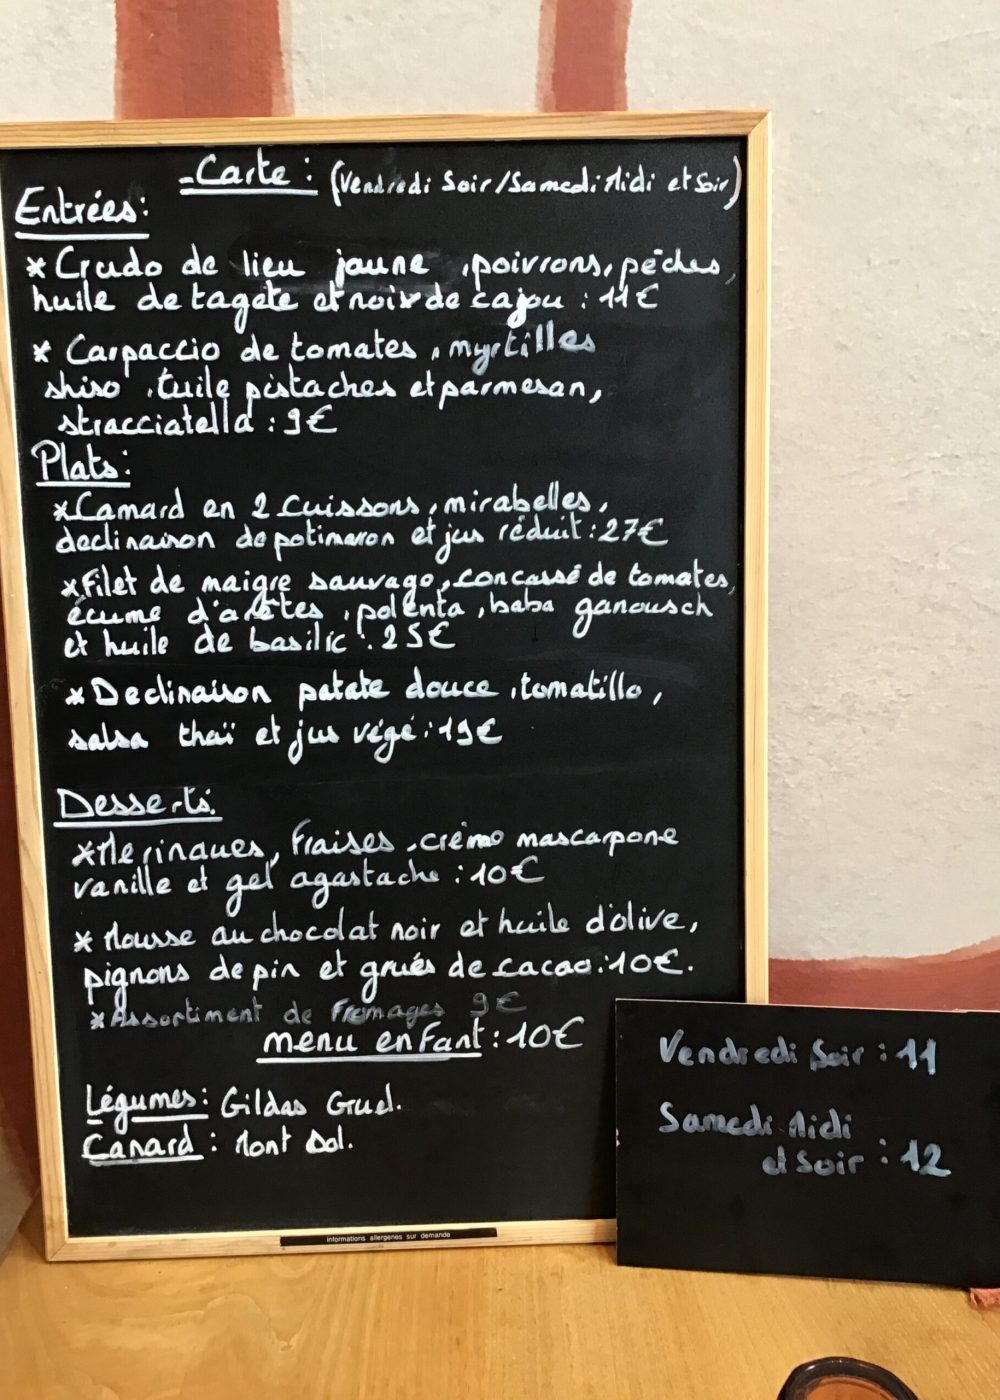 -Carte : (Vendredi Soir/Samedi Midi et Soir)
Entrées:
* Crudo de lieu jaune , poivrons, pêches,
huile de tagete et noix de cajou : 11€
* Carpaccio de tomates , myrtilles
shiso , tuile pistaches et parmesan,
stracciatella : 9€
Plats:
* Camard en 2 cuissons, mirabelles,
declinaison de potimaron et jus réduit : 27€
* Filet de maigre sauvage, concassé de tomates,
écume d'arêtes , polenta , baba ganousch
et huile de basilic : 25€
* Declinaison patate douce , tomatillo,
salsa thaï et jus végé : 19€
Desserts:
* Merinques, Fraises , crème mascarpone
vanille et gel agastache : 10€
* Mousse au chocolat noir et huile d'olive,
pignons de pin et grués de cacao : 10€.
* Assortiment de Fromages 9€
menu enfant : 10€
Légumes : Gildas Gruel.
Canard : Mont Dol.
informations allergenes sur demande
Vendredi Soir : 11
Samedi Midi
et Soir : 12